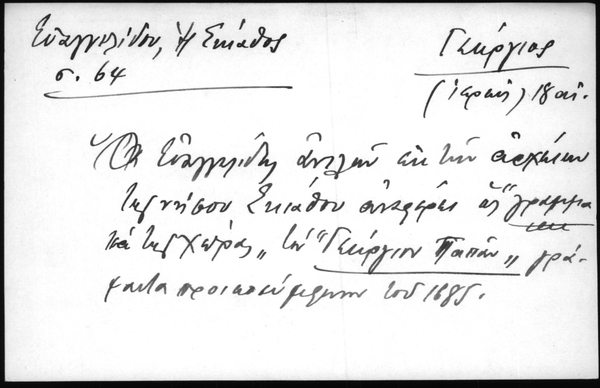 Εὐαγγελίδου, Ἡ Σκιάθος
σ. 64
Γεώργιος
(ἱερεύς) 18 αἰ.
Ὁ Εὐαγγελίδης ἀντλῶν ἐκ τῶν ἀρχείων
τῆς νήσου Σκιάθου ἀναφέρει ὡς "γραμμα
τῆς Χώρας" τὸν "Γεώργιον Παπᾶν" γρά-
φοντα προικοσύμφωνον τοῦ 1685.